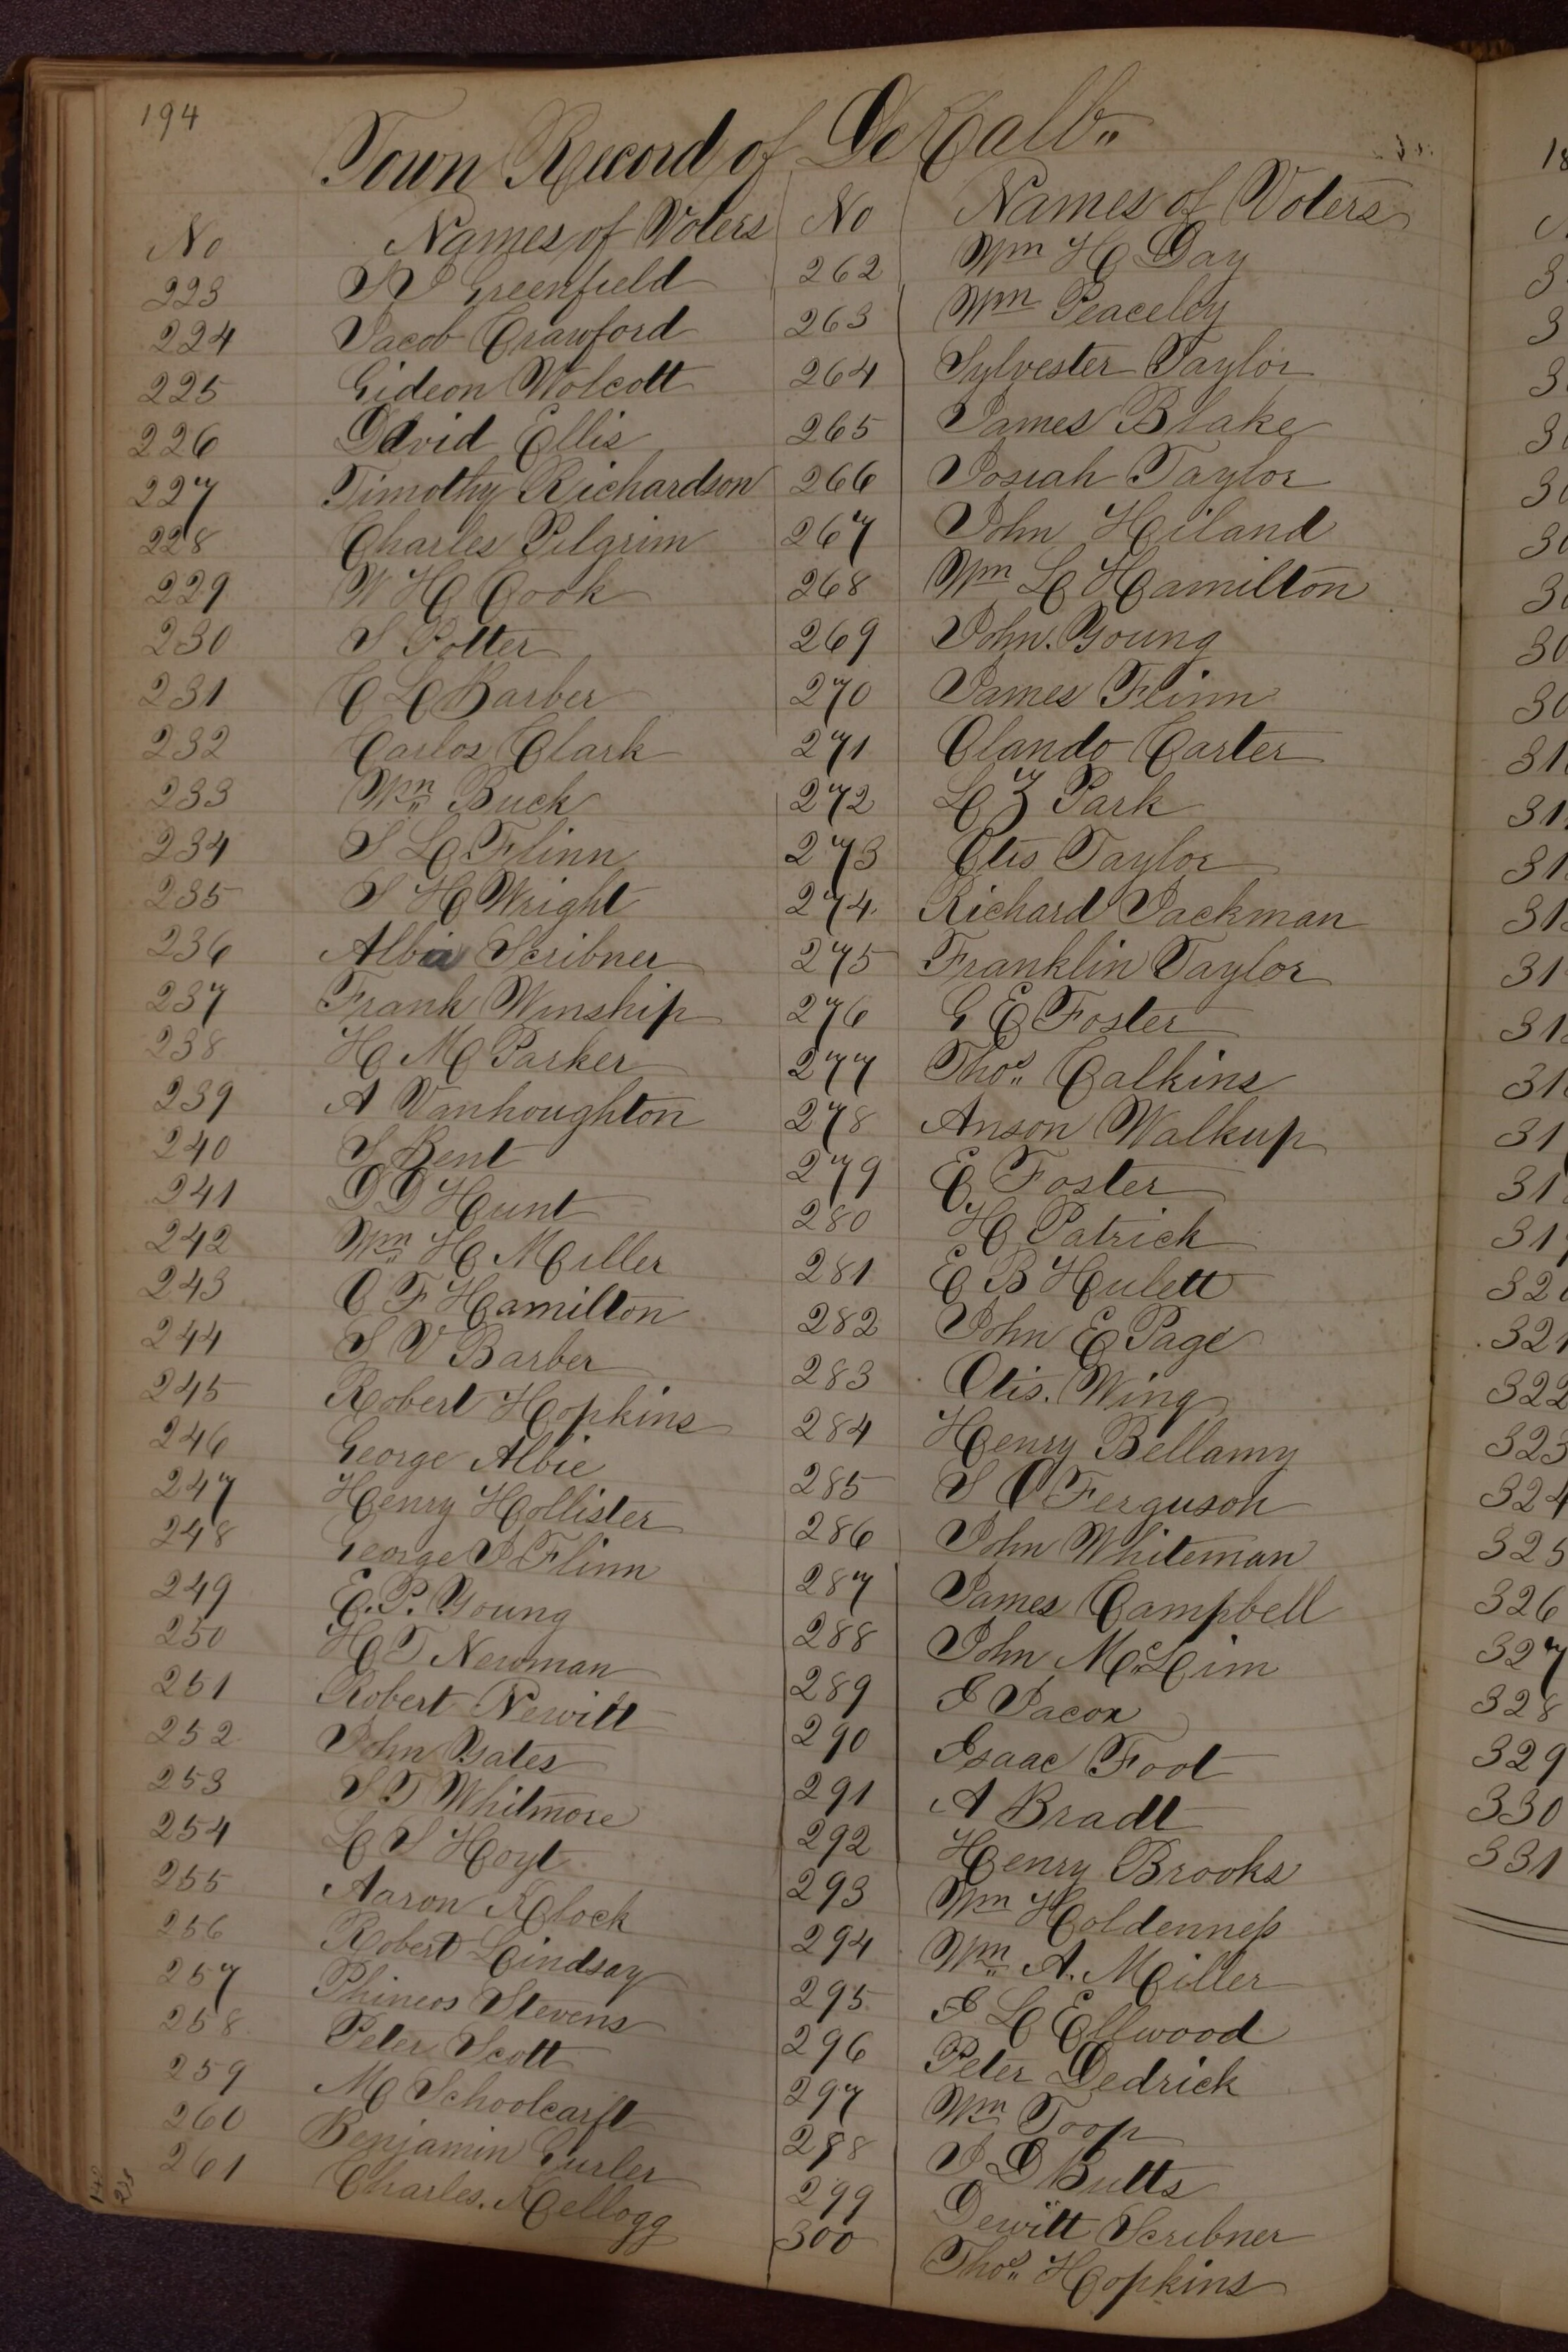 194
Town Record of DeKalb
No Names of Voters No Names of Voters
223 Greenfield 262 Wm H Day
224 Jacob Crawford 263 Wm Peaceley
225 Gideon Wolcott 264 Sylvester Taylor
226 David Ellis 265 James Blake
227 Timothy Richardson 266 Josiah Taylor
228 Charles Pilgrim 267 John Hiland
229 W H Cook 268 Wm L Hamilton
230 S Potter 269 John. Young
231 C L Barber 270 James Flinn
232 Carlos Clark 271 Olando Carter
233 Wm Buck 272 L Z Park
234 S L Flinn 273 Otis Taylor
235 S H Wright 274 Richard Jackman
236 Albia Scribner 275 Franklin Taylor
237 Frank Winship 276 G E Foster
238 H M Parker 277 Thos Calkins
239 A Vanhoughton 278 Anson Walkup
240 S Bent 279 E Foster
241 D D Hunt 280 H Patrick
242 Wm H Miller 281 E B Hulett
243 O F Hamilton 282 John E Page
244 S V Barber 283 Otis. Wing
245 Robert Hopkins 284 Henry Bellamy
246 George Albie 285 S O Ferguson
247 Henry Hollister 286 John Whiteman
248 George J Flinn 287 James Campbell
249 E. P. Young 288 John McLim
250 H T Newman 289 I Jacox
251 Robert Newitt 290 Isaac Foot
252 John Yates 291 A Bradt
253 S T Whitmore 292 Henry Brooks
254 L S Hoyt 293 Wm Holdenness
255 Aaron Klock 294 Wm A. Miller
256 Robert Lindsay 295 I L Ellwood
257 Phineos Stevens 296 Peter Dedrick
258 Peter Scott 297 Wm Toop
259 M Schoolcarft 298 J D Butts
260 Benjamin Gurler 299 Dewitt Scribner
261 Charles. Kellogg 300 Thos Hopkins
18
322
323
324
325
326
327
328
329
330
331